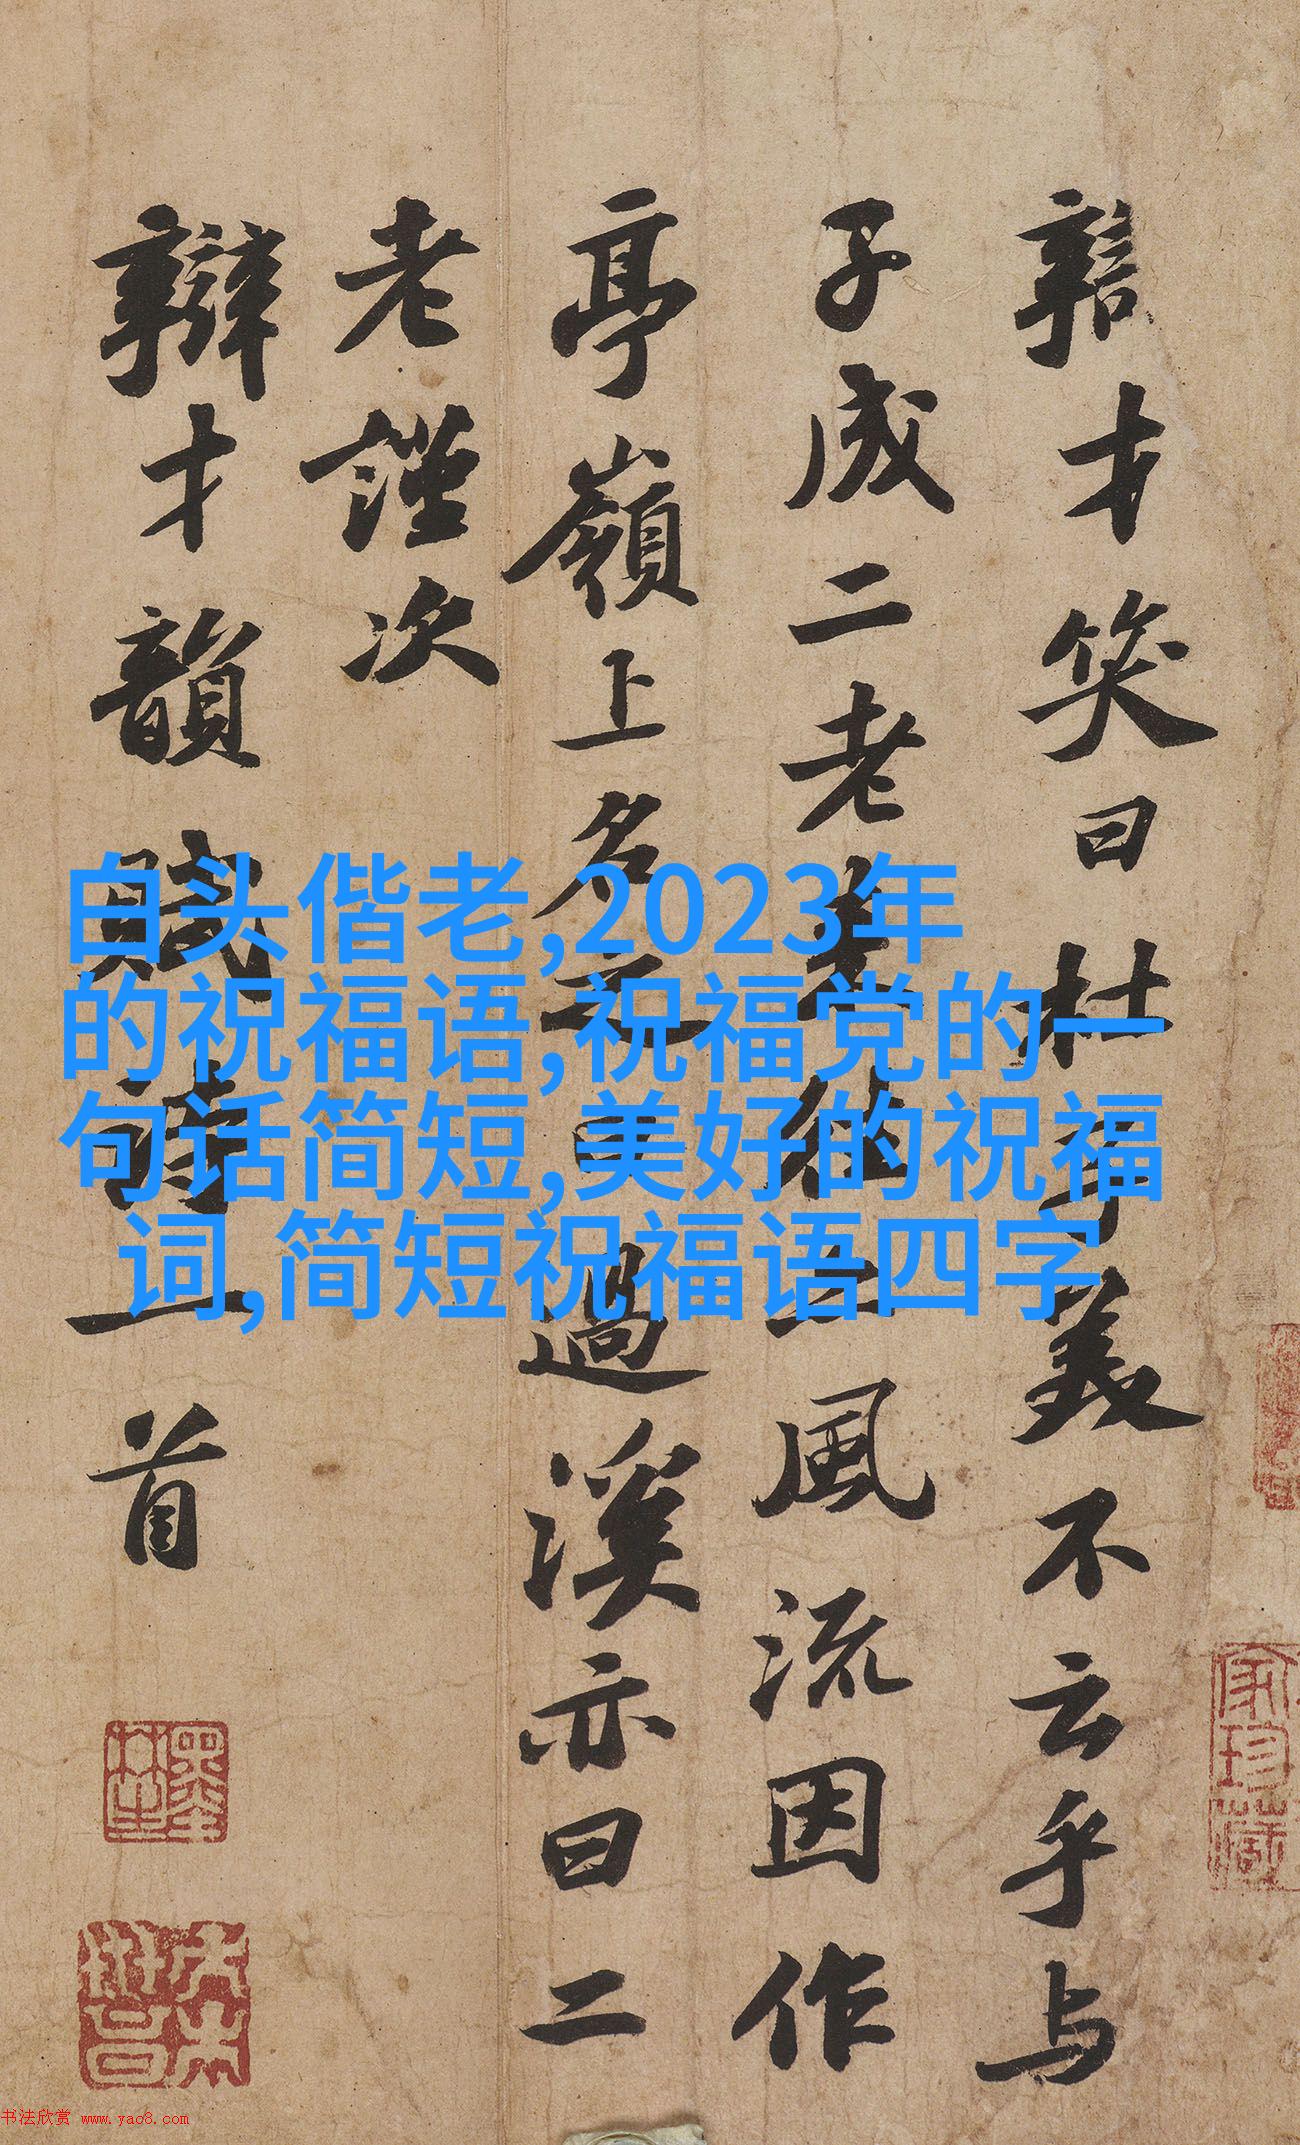 辯才笑曰杜子美不云乎与
子成二老来往亦風流因作
亭嶺上名之曰過溪亦曰二
老謹次
辯才韻賦詩一首
白头偕老,2023年
的祝福语,祝福党的一
句话简短,美好的祝福
词,简短祝福语四字
家珍藏
书法欣赏 www.yac8.com